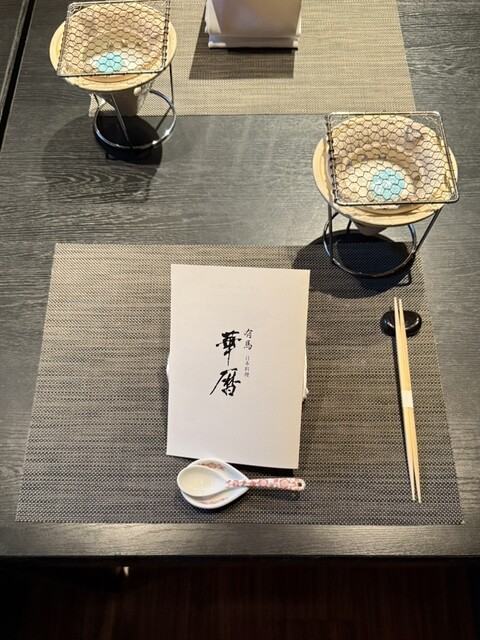 有馬
日本料理
華暦